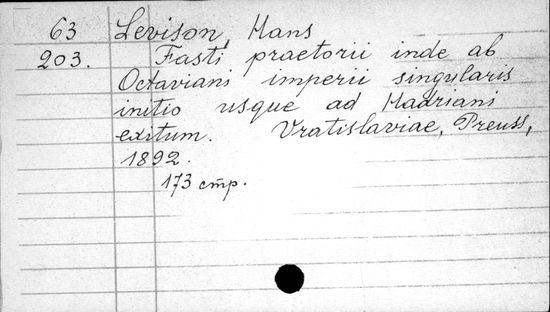 63 Levison, Hans
203. Fasti praetorii inde ab
Octaviani imperii singularis
initio usque ad Hadriani
exitum. Vratislaviae, Preuss,
1892.
173 стр.